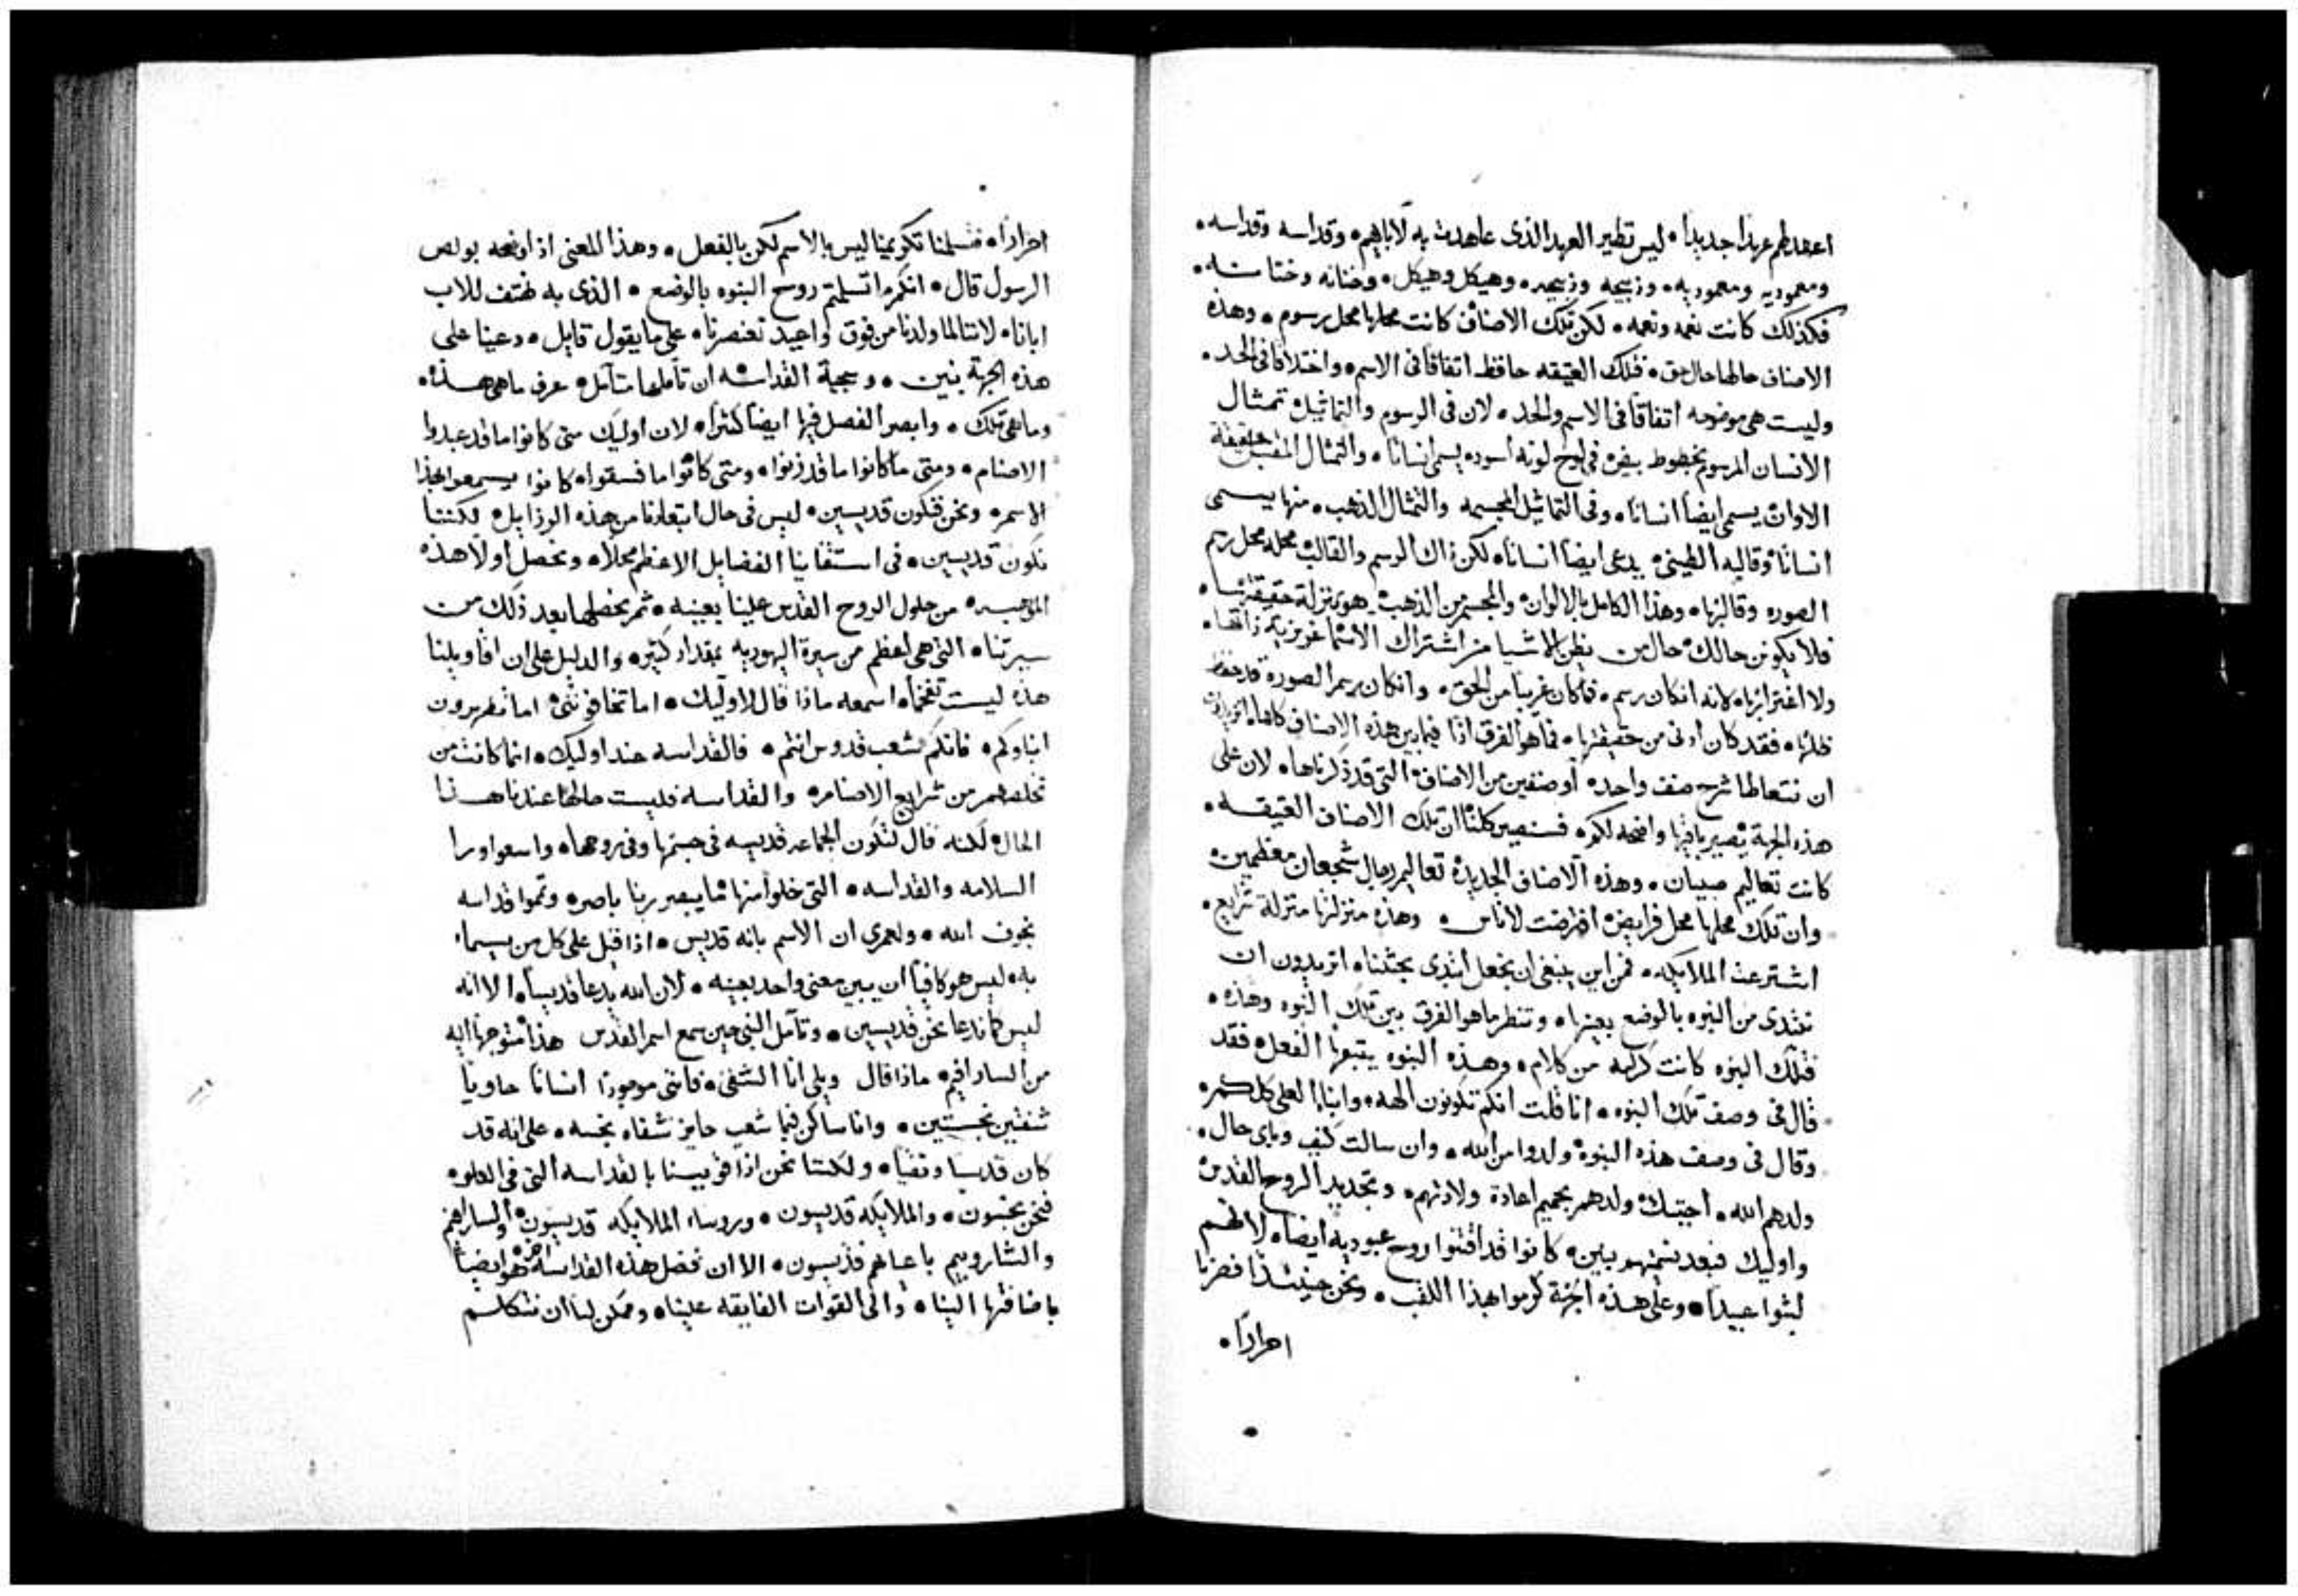 اعهد لهم عهدًا جديدًا ۰ ليس نظير العهد الذي عاهدت به لاباهم ۰ وقداسه وقداسه ۰
ومعموديه ومعموديه ۰ وذبيحه وذبيحه ۰ وهيكل وهيكل ۰ وختانه وختانه ۰
فكذلك كانت نعمه ونعمه ۰ لكن تلك الاصناف كانت محلها محل رسوم ۰ وهذه
الاصناف حالها حال حق ۰ فتلك العتيقه حافظه اتفاقًا في الاسم ۰ واختلافًا في الحد ۰
وليست هي موضحه اتفاقًا في الاسم والحد ۰ لان في الرسوم والتماثيل ۰ تمثال
الانسان المرسوم بخطوط بيض ۰ في لوح لونه اسود ۰ يسمى انسانًا ۰ والتمثال المقتبل حقيقة
الاوان ۰ يسمى ايضًا انسانًا ۰ وفي التماثيل المجسمه والتمثال الذهب ۰ منها يسمى
انسانًا ۰ وقالبه الطيني ۰ يدعى ايضًا انسانًا ۰ لكن ذاك الرسم والقالب ۰ محله محل رسم
الصوره وقالبها ۰ وهذا الكامل بالالوان ۰ والمجسم من الذهب ۰ هو بمنزلة حقيقتها ۰
فلا يكونن حالك ۰ حال من يظن للاشيا من اشتراك الاسما غريزية ذاتها ۰
ولا اغترابها ۰ لانه ان كان رسم ۰ فما كان غريبًا من الحق ۰ وان كان رسم الصورة قد حفظ
ظلها ۰ فقد كان ادنى من حقيقتها ۰ فما هو الفرق اذًا فيما بين هذه الاصناف كلها ۰ اتريدون
ان نتعاطا شرح صنف واحد ۰ او صنفين من الاصناف ۰ التي قد ذكرناها ۰ لان على
هذه الجهة ۰ تصير باقيها واضحه لكم ۰ فسنبصر كلنا ان تلك الاصناف العتيقه ۰
كانت تعاليم صبيان ۰ وهذه الاصناف الجديدة تعاليم رجال شجعان معظمين ۰
وان تلك محلها محل فرايض ۰ افترضت لاناس ۰ وهذه منزلتها منزلة شرايع ۰
اشترعت الملايكه ۰ فمن اين ينبغي ان نجعل ابتدى بحثنا ۰ اتريدون ان
نبتدى من البنوه بالوضع بعينها ۰ وننظر ما هو الفرق بين تلك البنوه وهذه ۰
فتلك البنوه كانت كرامه من كلام ۰ وهذه البنوه يتبعها الفعل ۰ فقد
قال في وصف تلك البنوه ۰ انا قلت انكم تكونون الهه ۰ وابنا العلي كلكم ۰
وقال في وصف هذه البنوة ۰ ولدوا من الله ۰ وان سالت كيف وباي حال ۰
ولدهم الله ۰ اجبتك ۰ ولدهم بحميم اعادة ولادتهم ۰ وتجديد الروح القدس ۰
واوليك فبعد تسميتهم بنين ۰ كانوا قد اقتنوا روح عبودية ايضًا ۰ لانهم
لبثوا عبيدًا ۰ وعلى هذه الجهة كرموا بهذا اللقب ۰ ونحن حينئذًا فصرنا
احرارًا ۰
احرارًا ۰ فتسلمنا تكريمنا ليس بالاسم لكن بالفعل ۰ وهذا المعنى اذ اوضحه بولص
الرسول قال ۰ انكم ما تسلمتم روح البنوه بالوضع ۰ الذي به نهتف للاب
ابانا ۰ لاننا لما ولدنا من فوق واعيد تعنصرنا ۰ على ما يقول قايل ۰ دعينا على
هذه الجهة بنين ۰ وسجية القداسه ۰ ان تاملها متامل ۰ عرف ما هي هذه ۰
وما هي تلك ۰ وابصر الفصل فيها ايضًا كثيرًا ۰ لان اوليك متى كانوا ما قد عبدوا
الاصنام ۰ ومتى ما كانوا ما قد زنوا ۰ ومتى كانوا ما فسقوا ۰ كانوا يسمعوا بهذا
الاسم ۰ ونحن فنكون قديسين ۰ ليس في حال ابتعادنا من هذه الرزايل ۰ لكننا
نكون قديسين ۰ في استقنايا الفضايل الاعظم محلًا ۰ وتحصل اولًا هذه
الموهبه ۰ من حلول الروح القدس علينا بعينه ۰ ثم نحصلها بعد ذلك من
سيرتنا ۰ التي هي اعظم من سيرة اليهوديه بمقدار كثير ۰ والدليل على ان اقاويلنا
هذه ليست تفخمًا ۰ اسمعه ماذا قال لاوليك ۰ اما تخافونني ۰ اما تطهرون
ابناوكم ۰ فانكم شعب قدوس انتم ۰ فالقداسه عند اوليك ۰ انما كانت من
تخلصهم من شرايع الاصنام ۰ والقداسه فليست حالها عندنا هذا
الحال ۰ لكنه قال لتكون الجماعه قديسه في جسمها وفي روحها ۰ واسعوا ورا
السلامه والقداسه ۰ التي خلوا منها ما يبصر ربنا باصر ۰ وتموا قداسه
بخوف الله ۰ ولعمري ان الاسم بانه قديس ۰ اذا قيل على كل من يسما
به ۰ ليس هو كافيًا ان يبين معنى واحد بعينه ۰ لان الله يدعا قديسًا ۰ الا انه
ليس كما ندعا نحن قديسين ۰ وتامل النبي حين سمع اسم القدس هذا متوجهًا اليه
من السارافيم ۰ ماذا قال ويلي انا الشقي ۰ فانني موجودًا انسانًا حاويًا
شفتين نجستين ۰ وانا ساكن فيما شعب حايز شفاه نجسه ۰ على انه قد
كان قديسًا ونقيًا ۰ ولكننا نحن اذا قويسنا بالقداسه التي في العلو ۰
فنحن نجسون ۰ والملايكه قديسون ۰ وروساء الملايكه قديسون ۰ والسارافيم
والشاروبيم باعيانهم قديسون ۰ الا ان فصل هذه القداسة اخر ۰ هو ايضًا
باضافتها الينا ۰ والى القوات الفايقه علينا ۰ وممكن لنا ان نتكلم